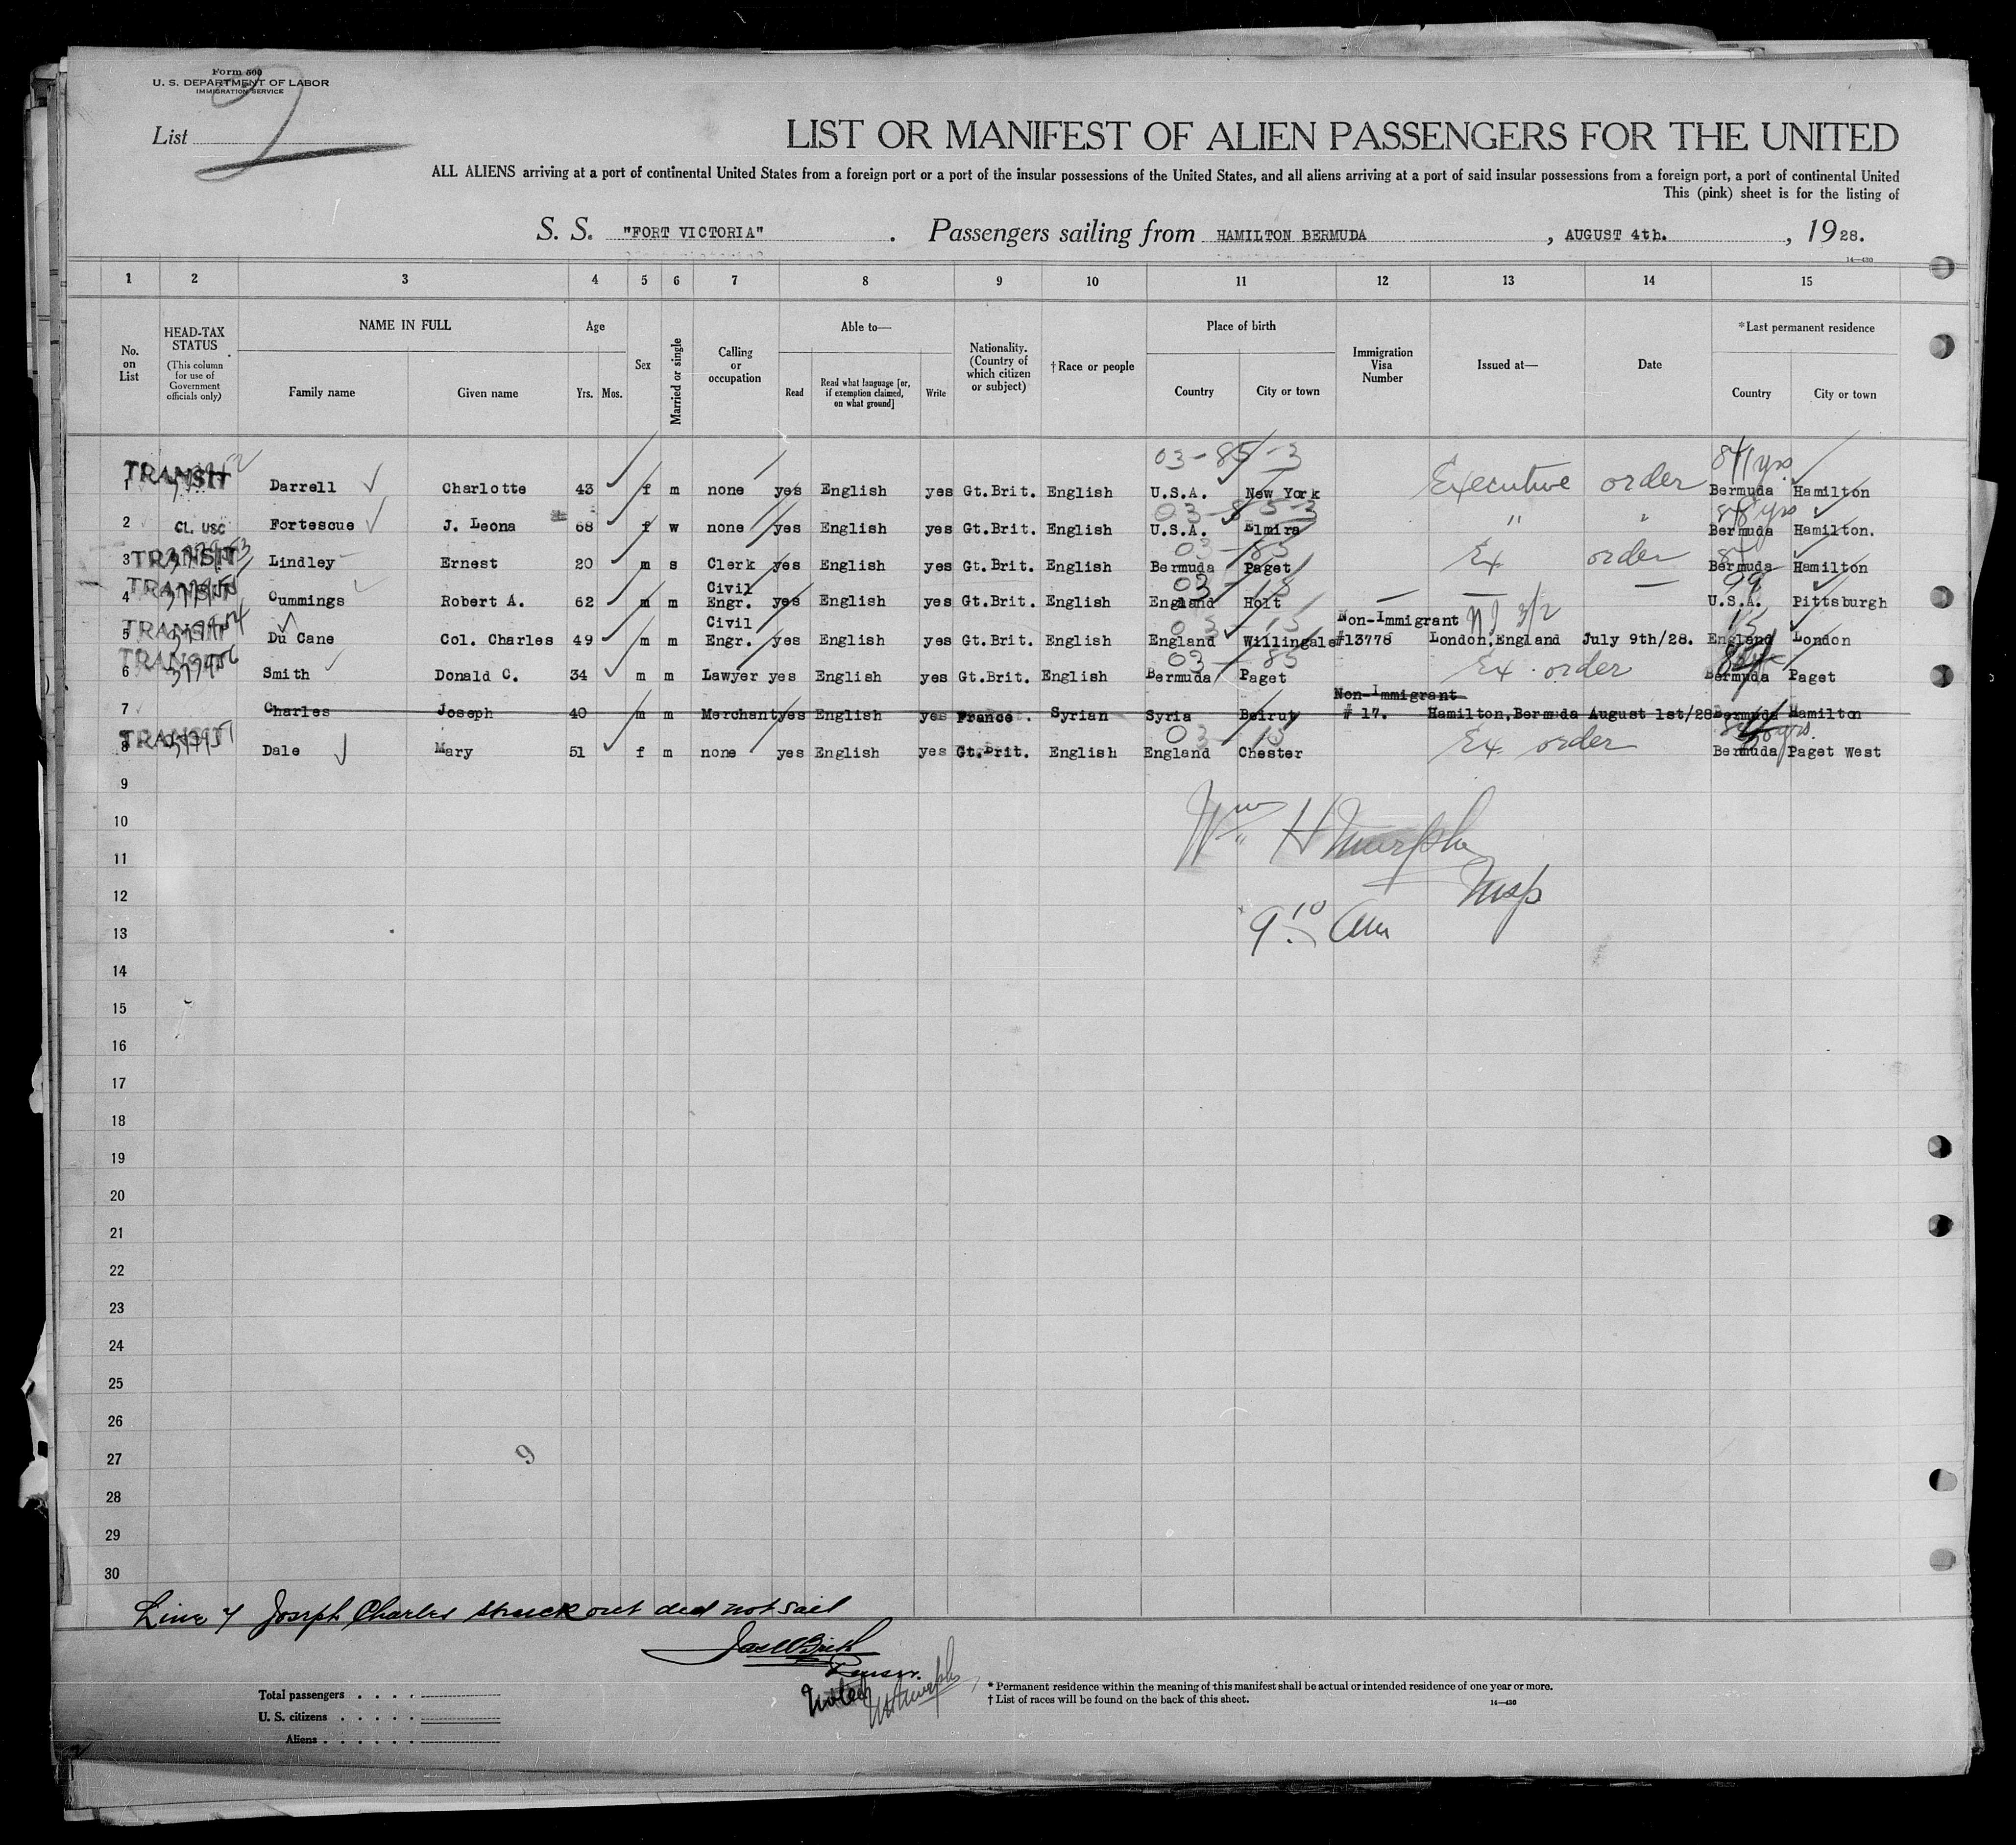 Form 500
U. S. DEPARTMENT OF LABOR
IMMIGRATION SERVICE
List
LIST OR MANIFEST OF ALIEN PASSENGERS FOR THE UNITED
ALL ALIENS arriving at a port of continental United States from a foreign port or a port of the insular possessions of the United States, and all aliens arriving at a port of said insular possessions from a foreign port, a port of continental United
This (pink) sheet is for the listing of
S. S. "FORT VICTORIA" . Passengers sailing from HAMILTON BERMUDA , AUGUST 4th. , 1928.
14—430
1 2 3 4 5 6 7 8 9 10 11 12 13 14 15
No. on List
HEAD-TAX STATUS (This column for use of Government officials only)
NAME IN FULL Family name Given name
Age Yrs. Mos.
Sex
Married or single
Calling or occupation
Able to— Read Read what language [or, if exemption claimed, on what ground] Write
Nationality. (Country of which citizen or subject)
†Race or people
Place of birth Country City or town
Immigration Visa Number
Issued at—
Date
*Last permanent residence Country City or town
03-85-3
1 TRANSIT Darrell Charlotte 43 f m none yes English yes Gt.Brit. English U.S.A. New York Executive order Bermuda Hamilton
03-85-3
2 CL. USC Fortescue J. Leona 68 f w none yes English yes Gt.Brit. English U.S.A. Elmira " " Bermuda Hamilton.
03-85
3 TRANSIT Lindley Ernest 20 m s Clerk yes English yes Gt.Brit. English Bermuda Paget Ex order Bermuda Hamilton
03-15 99
4 TRANSIT Cummings Robert A. 62 m m Civil Engr. yes English yes Gt.Brit. English England Holt — — — U.S.A. Pittsburgh
03 15 15
5 TRANSIT Du Cane Col. Charles 49 m m Civil Engr. yes English yes Gt.Brit. English England Willingale Non-Immigrant #13778 London,England July 9th/28. England London
03-85
6 TRANSIT Smith Donald C. 34 m m Lawyer yes English yes Gt.Brit. English Bermuda Paget Ex. order Bermuda Paget
7 Charles Joseph 40 m m Merchant yes English yes France. Syrian Syria Beirut Non-Immigrant # 17. Hamilton,Bermuda August 1st/28 Bermuda Hamilton
03-15
8 TRANSIT Dale Mary 51 f m none yes English yes Gt.Brit. English England Chester Ex. order Bermuda Paget West
9
10
11
12
13
14
15
16
17
18
19
20
21
22
23
24
25
26
27
28
29
30
Wm H Murphy
Insp
9 10 Am
9
Line 7 Joseph Charles struck out did not sail
Purser.
Noted
Total passengers . . . .
U. S. citizens . . . . .
Aliens . . . . . .
* Permanent residence within the meaning of this manifest shall be actual or intended residence of one year or more.
† List of races will be found on the back of this sheet.
14—430